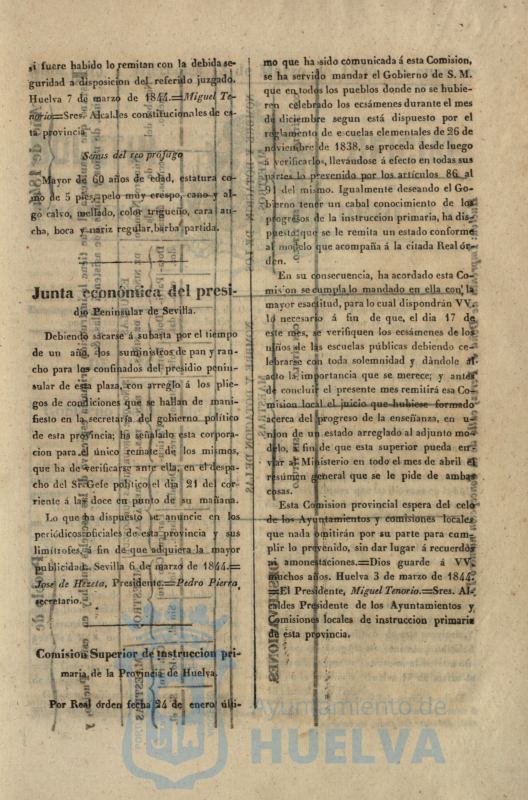 si fuere habido lo remitan con la debida se-
guridad a disposicion del referido juzgado.
Huelva 7 de marzo de 1844.=Miguel Te-
norio=Sres. Alcaldes constitucionales de es-
ta provincia
Señas del reo prófugo
Mayor de 60 años de edad, estatura co-
mo de 5 pies, pelo muy crespo, cano y al-
go calvo, mellado, color trigueño, cara an-
cha, boca y nariz regular, barba partida.
Junta económica del presi-
dio Peninsular de Sevilla.
Debiendo sacarse á subasta por el tiempo
de un año, los suministros de pan y ran-
cho para los confinados del presidio penin-
sular de esta plaza, con arreglo á los plie-
gos de condiciones que se hallan de mani-
fiesto en la secretaría del gobierno político
de esta provincia; ha señalado esta corpora-
cion para el único remate de los mismos,
que ha de verificarse ante ella, en el despa-
cho del Sr. Gefe político el dia 21 del cor-
riente á las doce en punto de su mañana.
Lo que ha dispuesto se anuncie en los
periódicos oficiales de esta provincia y sus
limítrofes, á fin de que adquiera la mayor
publicidad. Sevilla 6 de marzo de 1844.=
Jose de Hezeta, Presidente.=Pedro Pierra,
secretario.
Comision Superior de instruccion pri-
maria de la Provincia de Huelva.
Por Real órden fecha 24 de enero últi-
mo que ha sido comunicada á esta Comision,
se ha servido mandar el Gobierno de S. M.
que en todos los pueblos donde no se hubie-
ren celebrado los ecsámenes durante el mes
de diciembre segun está dispuesto por el
reglamento de escuelas elementales de 26 de
noviembre de 1838, se proceda desde luego
á verificarlos, llevándose á efecto en todas sus
partes lo prevenido por los artículos 86 al
91 del mismo. Igualmente deseando el Go-
bierno tener un cabal conocimiento de los
progresos de la instruccion primaria, ha dis-
puesto que se le remita un estado conforme
al modelo que acompaña á la citada Real ór-
den.
En su consecuencia, ha acordado esta Co-
mision se cumpla lo mandado en ella con la
mayor esactitud, para lo cual dispondrán VV.
lo necesario á fin de que, el dia 17 de
este mes, se verifiquen los ecsámenes de los
niños de las escuelas públicas debiendo ce-
lebrarse con toda solemnidad y dándole al
acto la importancia que se merece; y antes
de concluir el presente mes remitirá esa Co-
mision local el juicio que hubiese formado
acerca del progreso de la enseñanza, en u-
nion de un estado arreglado al adjunto mo-
delo, á fin de que esta superior pueda en-
viar al Ministerio en todo el mes de abril el
resúmen general que se le pide de ambas
cosas.
Esta Comision provincial espera del celo
de los Ayuntamientos y comisiones locales
que nada omitirán por su parte para cum-
plir lo prevenido, sin dar lugar á recuerdos
ni amonestaciones.=Dios guarde á VV.
muchos años. Huelva 3 de marzo de 1844.
=El Presidente, Miguel Tenorio.=Sres. Al-
caldes Presidente de los Ayuntamientos y
Comisiones locales de instruccion primaria
de esta provincia.
Ayuntamiento de
HUELVA